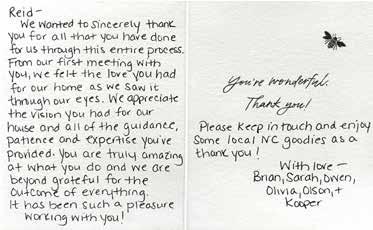 Reid-
We wanted to sincerely thank
you for all that you have done
for us through this entire process.
From our first meeting with
you, we felt the love you had
for our home as we saw it
through our eyes. We appreciate
the vision you had for our
house and all of the guidance,
patience and expertise you've
provided. You are truly amazing
at what you do and we are
beyond grateful for the
outcome of everything.
It has been such a pleasure
working with you!
You're wonderful.
Thank you!
Please keep in touch and enjoy
some local NC goodies as a
thank you!
With love-
Brian, Sarah, Owen,
Olivia, Olson, +
Kooper